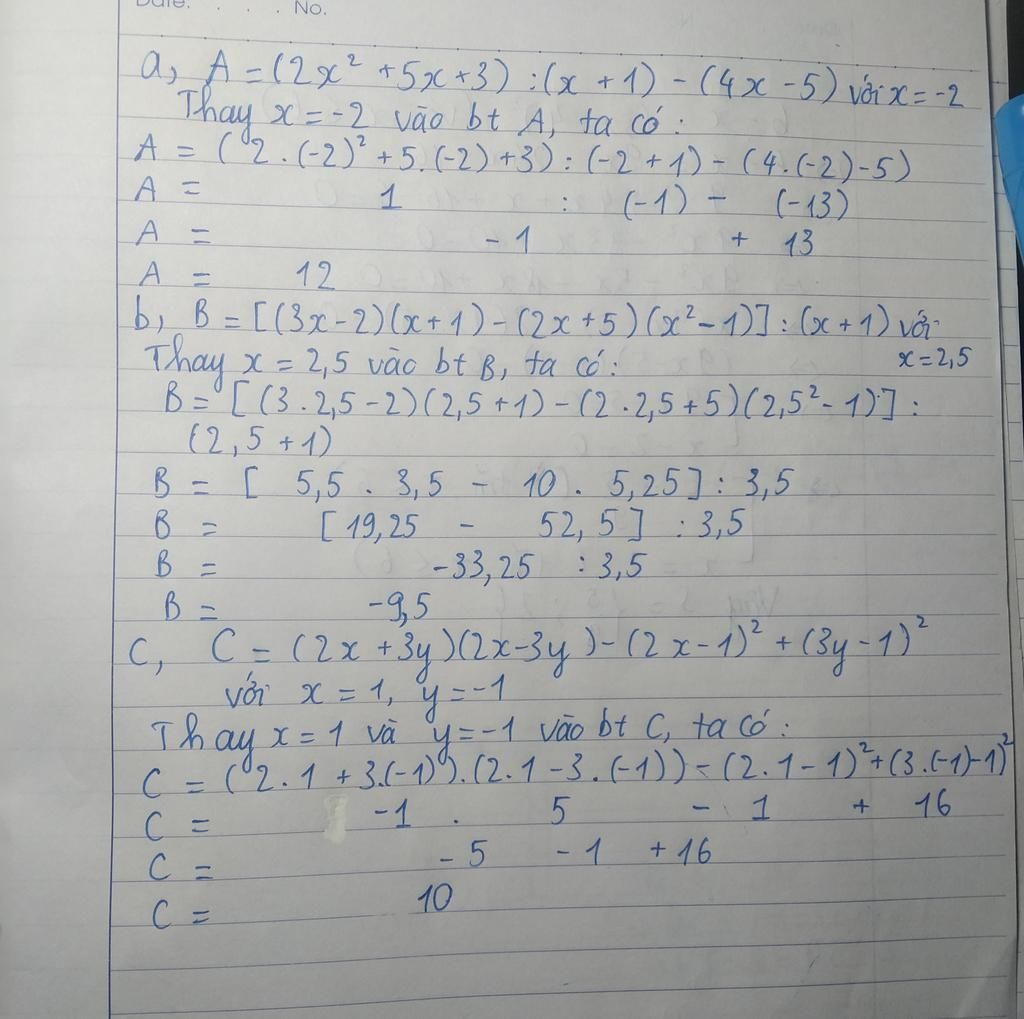 Date. . . . No.
a, A = (2x² + 5x + 3) : (x + 1) - (4x - 5) với x = -2
Thay x = -2 vào bt A, ta có :
A = ( 2 . (-2)² + 5. (-2) + 3) : (-2 + 1) - (4. (-2) - 5)
A = 1 : (-1) - (-13)
A = - 1 + 13
A = 12
b, B = [(3x - 2)(x + 1) - (2x + 5)(x² - 1)] : (x + 1) với
x = 2,5
Thay x = 2,5 vào bt B, ta có :
B = [ (3 . 2,5 - 2)(2,5 + 1) - (2 . 2,5 + 5)(2,5² - 1)] :
(2,5 + 1)
B = [ 5,5 . 3,5 - 10 . 5,25] : 3,5
B = [19,25 - 52,5] : 3,5
B = -33,25 : 3,5
B = -9,5
C, C = (2x + 3y)(2x - 3y) - (2x - 1)² + (3y - 1)²
với x = 1, y = -1
Thay x = 1 và y = -1 vào bt C, ta có :
C = (2.1 + 3.(-1)).(2.1 - 3.(-1)) - (2.1 - 1)² + (3.(-1) - 1)²
C = -1 . 5 - 1 + 16
C = - 5 - 1 + 16
C = 10